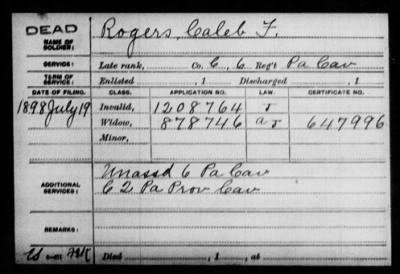 DEAD
NAME OF SOLDIER: Rogers, Caleb F.
SERVICE: Late rank, Co. C, 6 Reg't Pa Cav
TERM OF SERVICE: Enlisted , 1 Discharged , 1
DATE OF FILING. CLASS. APPLICATION NO. LAW. CERTIFICATE NO.
1898 July 19 Invalid, 1208764
Widow, 878746 647996
Minor,
ADDITIONAL SERVICES: Unassd 6 Pa Cav
C 2 Pa Prov Cav
REMARKS:
Died , 1 , at